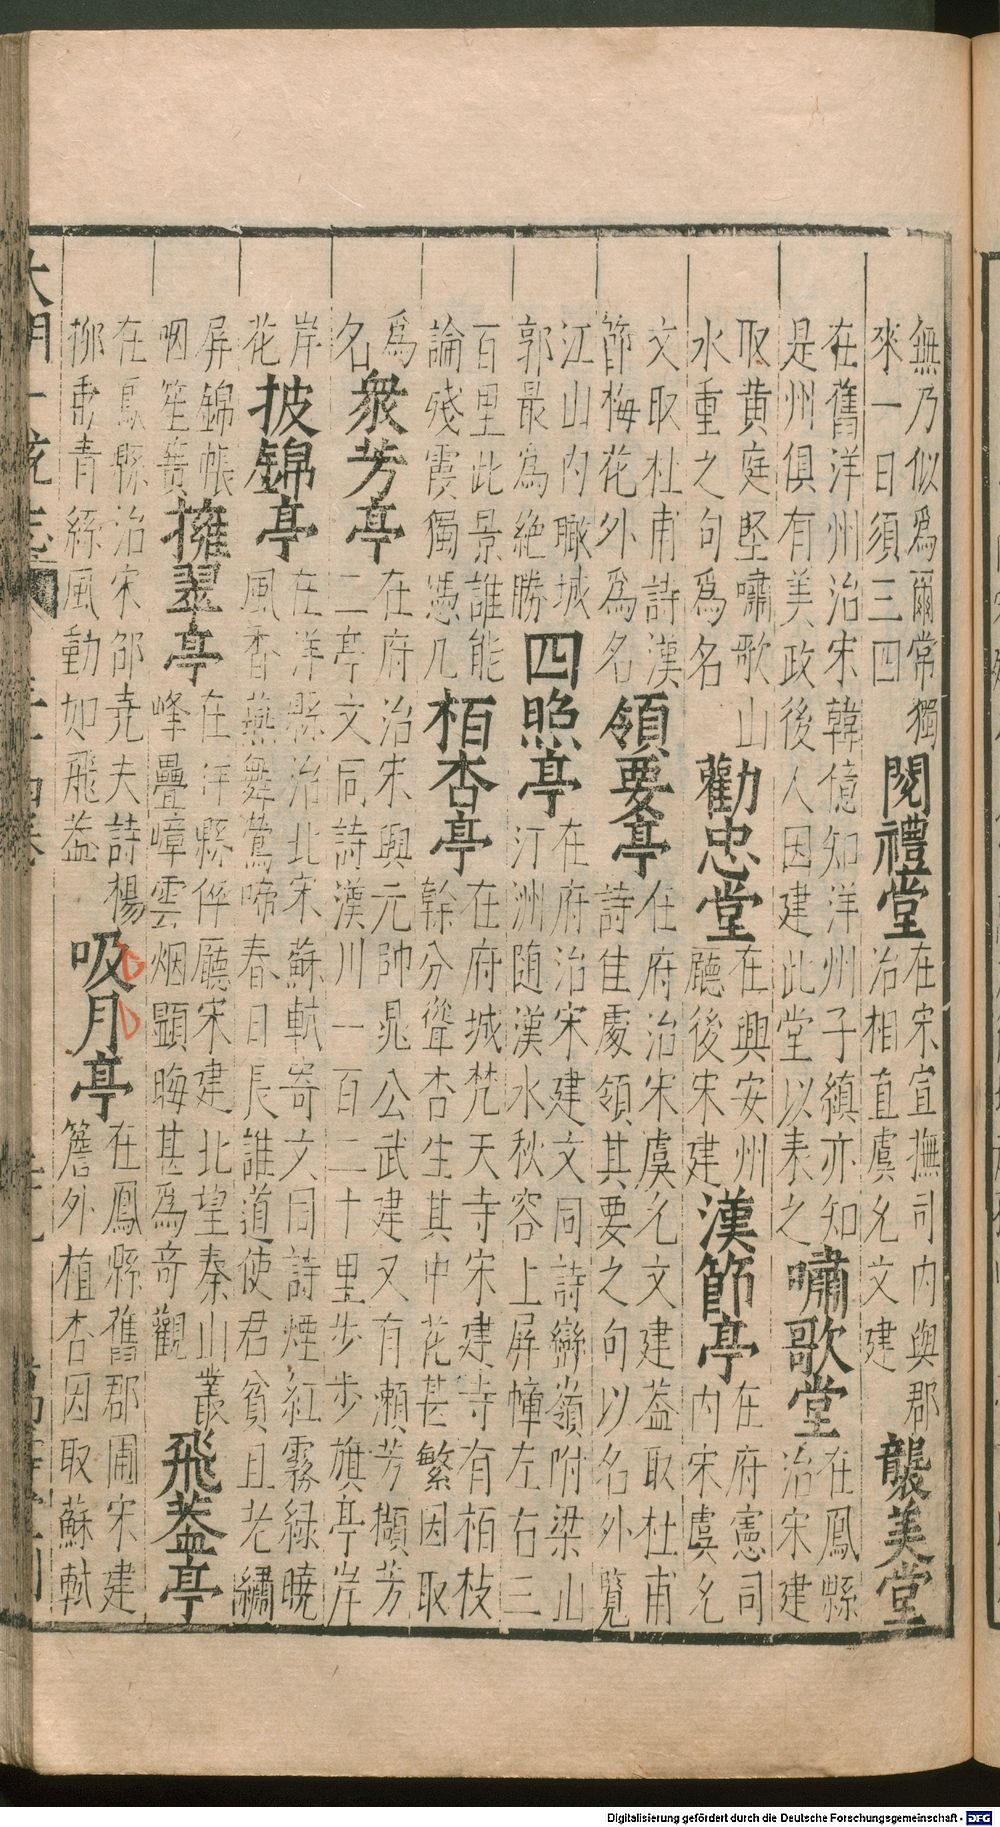 無乃似爲爾常獨
來一日須三四
閱禮堂
在宋宣撫司内與郡
治相直虞允文建
襲美堂
在舊洋州治宋韓億知洋州子縝亦知
是州俱有美政後人因建此堂以表之
嘯歌堂
在鳳縣
治宋建
取黄庭堅嘯歌山
水重之句爲名
勸忠堂
在興安州
廳後宋建
漢節亭
在府憲司
内宋虞允
文取杜甫詩漢
節梅花外爲名
領要亭
在府治宋虞允文建葢取杜甫
詩佳處領其要之句以名外覽
江山内瞰城
郭最爲絶勝
四照亭
在府治宋建文同詩巒嶺附梁山
汀洲随漢水秋容上屏幛左右三
百里此景誰能
論殘霞獨憑几
栢杏亭
在府城梵天寺宋建寺有栢枝
幹分聳杏生其中花甚繁因取
爲
名
衆芳亭
在府治宋興元帥晁公武建又有瀬芳擷芳
二亭文同詩漢川一百二十里步步旗亭岸
岸
花
披錦亭
在洋縣治北宋蘇軾寄文同詩煙紅霧緑曉
風香燕舞鶯啼春日長誰道使君貧且老繡
屏錦帳
咽笙簧
擁翠亭
在洋縣倅廳宋建北望秦山叢
峰疊嶂雲烟顯晦甚爲奇觀
飛葢亭
在鳳縣治宋邵尭夫詩楊
柳垂青絲風動如飛葢
吸月亭
在鳳縣舊郡圃宋建
簷外植杏因取蘇軾
大明一統志
Digitalisierung gefördert durch die Deutsche Forschungsgemeinschaft - DFG